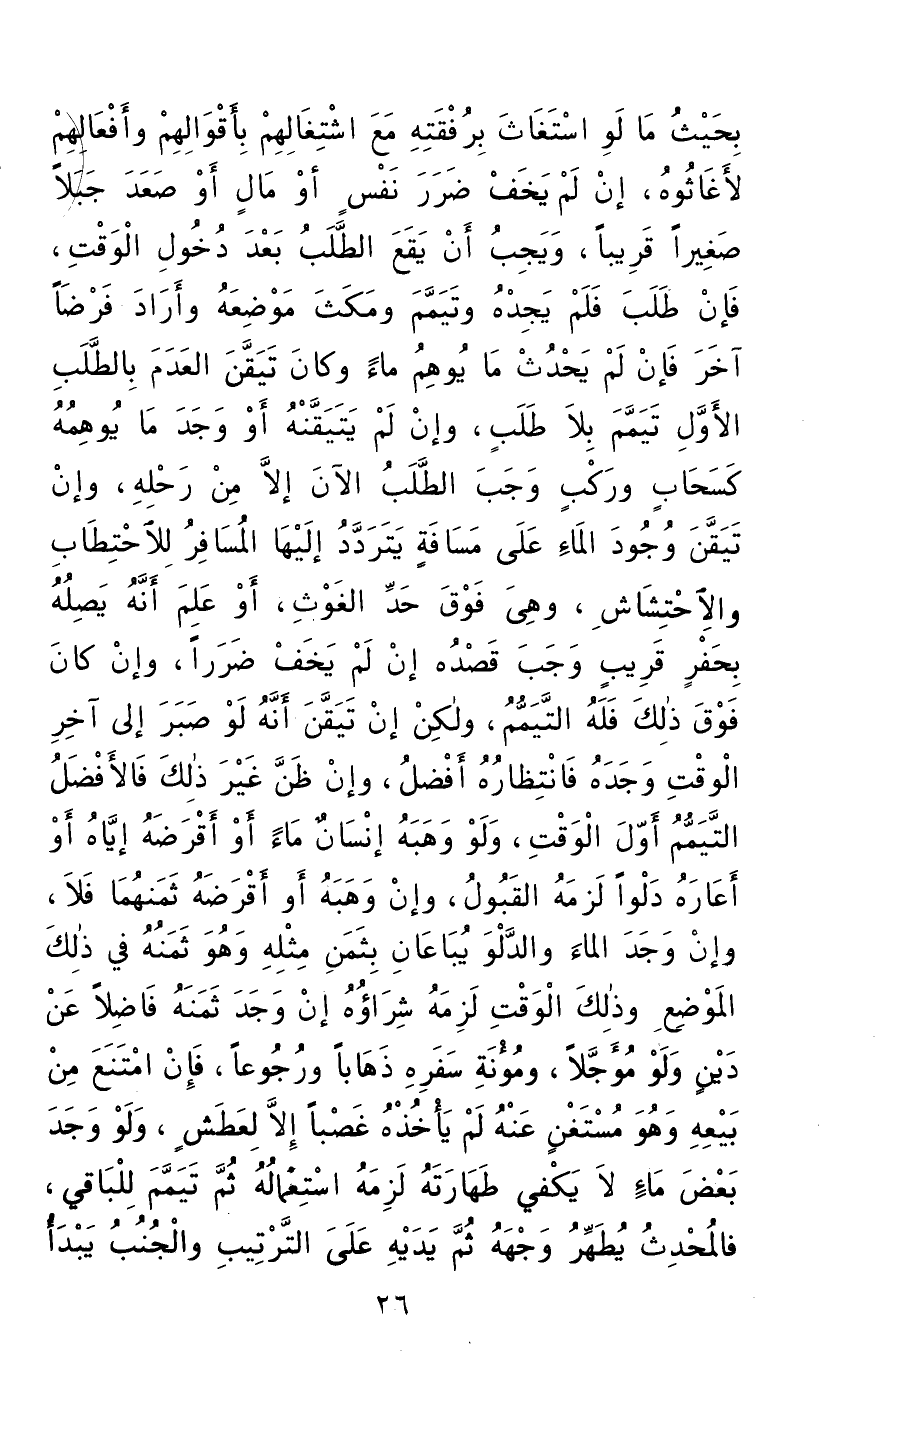 بِحَيْثُ مَا لَوِ اسْتَغَاثَ بِرُفْقَتِهِ مَعَ اشْتِغَالِهِمْ بِأَقْوَالِهِمْ وأَفْعَالِهِمْ
لأَغَاثُوهُ، إنْ لَمْ يَخَفْ ضَرَرَ نَفْسٍ أوْ مَالٍ أَوْ صَعَدَ جَبَلاً
صَغِيراً قَرِيباً، وَيَجِبُ أَنْ يَقَعَ الطَّلَبُ بَعْدَ دُخُولِ الْوَقْتِ،
فَإنْ طَلَبَ فَلَمْ يَجِدْهُ وتَيَمَّمَ ومَكَثَ مَوْضِعَهُ وأَرَادَ فَرْضَاً
آخَرَ فَإنْ لَمْ يَحْدُثْ مَا يُوهِمُ ماءً وكانَ تَيَقَّنَ العَدَمَ بِالطَّلَبِ
الأَوَّلِ تَيَمَّمَ بِلاَ طَلَبٍ، وإنْ لَمْ يَتَيَقَّنْهُ أَوْ وَجَدَ مَا يُوهِمُهُ
كَسَحَابٍ ورَكْبٍ وَجَبَ الطَّلَبُ الآنَ إلاَّ مِنْ رَحْلِهِ، وإنْ
تَيَقَّنَ وُجُودَ المَاءِ عَلَى مَسَافَةٍ يَتَرَدَّدُ إلَيْهَا المُسَافِرُ لِلاحْتِطَابِ
والاِحْتِشَاشِ، وهِيَ فَوْقَ حَدِّ الغَوْثِ، أَوْ عَلِمَ أَنَّهُ يَصِلُهُ
بِحَفْرٍ قَرِيبٍ وَجَبَ قَصْدُه إنْ لَمْ يَخَفْ ضَرَراً، وإنْ كانَ
فَوْقَ ذٰلِكَ فَلَهُ التَّيَمُّمُ، ولٰكِنْ إنْ تَيَقَّنَ أَنَّهُ لَوْ صَبَرَ إلى آخِرِ
الْوقْتِ وَجَدَهُ فَانْتِظارُهُ أَفْضلُ، وإنْ ظَنَّ غَيْرَ ذٰلِكَ فَالأَفْضَلُ
التَّيَمُّمُ أَوّلَ الْوَقْتِ، ولَوْ وَهَبَهُ إنْسَانٌ مَاءً أَوْ أَقْرَضَهُ إيَّاهُ أَوْ
أَعَارَهُ دَلْواً لَزِمَهُ القَبُولُ، وإنْ وَهَبَهُ أو أَقْرَضَهُ ثَمَنهُمَا فَلاَ،
وإنْ وَجَدَ الماءَ والدَّلْوَ يُبَاعَانِ بِثَمَنِ مِثْلِهِ وَهُوَ ثَمَنُهُ في ذٰلِكَ
المَوْضِعِ وذٰلِكَ الْوَقْتِ لَزِمَهُ شِرَاؤُهُ إنْ وَجَدَ ثَمَنَهُ فَاضِلاً عَنْ
دَيْنٍ ولَوْ مُؤَجَّلاً، ومُؤْنَةِ سَفَرِهِ ذَهَاباً ورُجُوعاً، فَإِنْ امْتَنَعَ مِنْ
بَيْعِهِ وَهُوَ مُسْتَغْنٍ عَنْهُ لَمْ يَأْخُذْهُ غَصْباً إلاَّ لِعَطَشٍ، ولَوْ وَجَدَ
بَعْضَ مَاءٍ لاَ يَكْفي طَهَارَتَهُ لَزِمَهُ اسْتِعْمالُهُ ثُمَّ تَيَمَّمَ لِلْبَاقي،
فالمُحْدِثُ يُطَهِّرُ وَجْهَهُ ثُمَّ يَدَيْهِ عَلَىَ التَّرْتِيبِ والْجُنُبُ يَبْدَأُ
٢٦